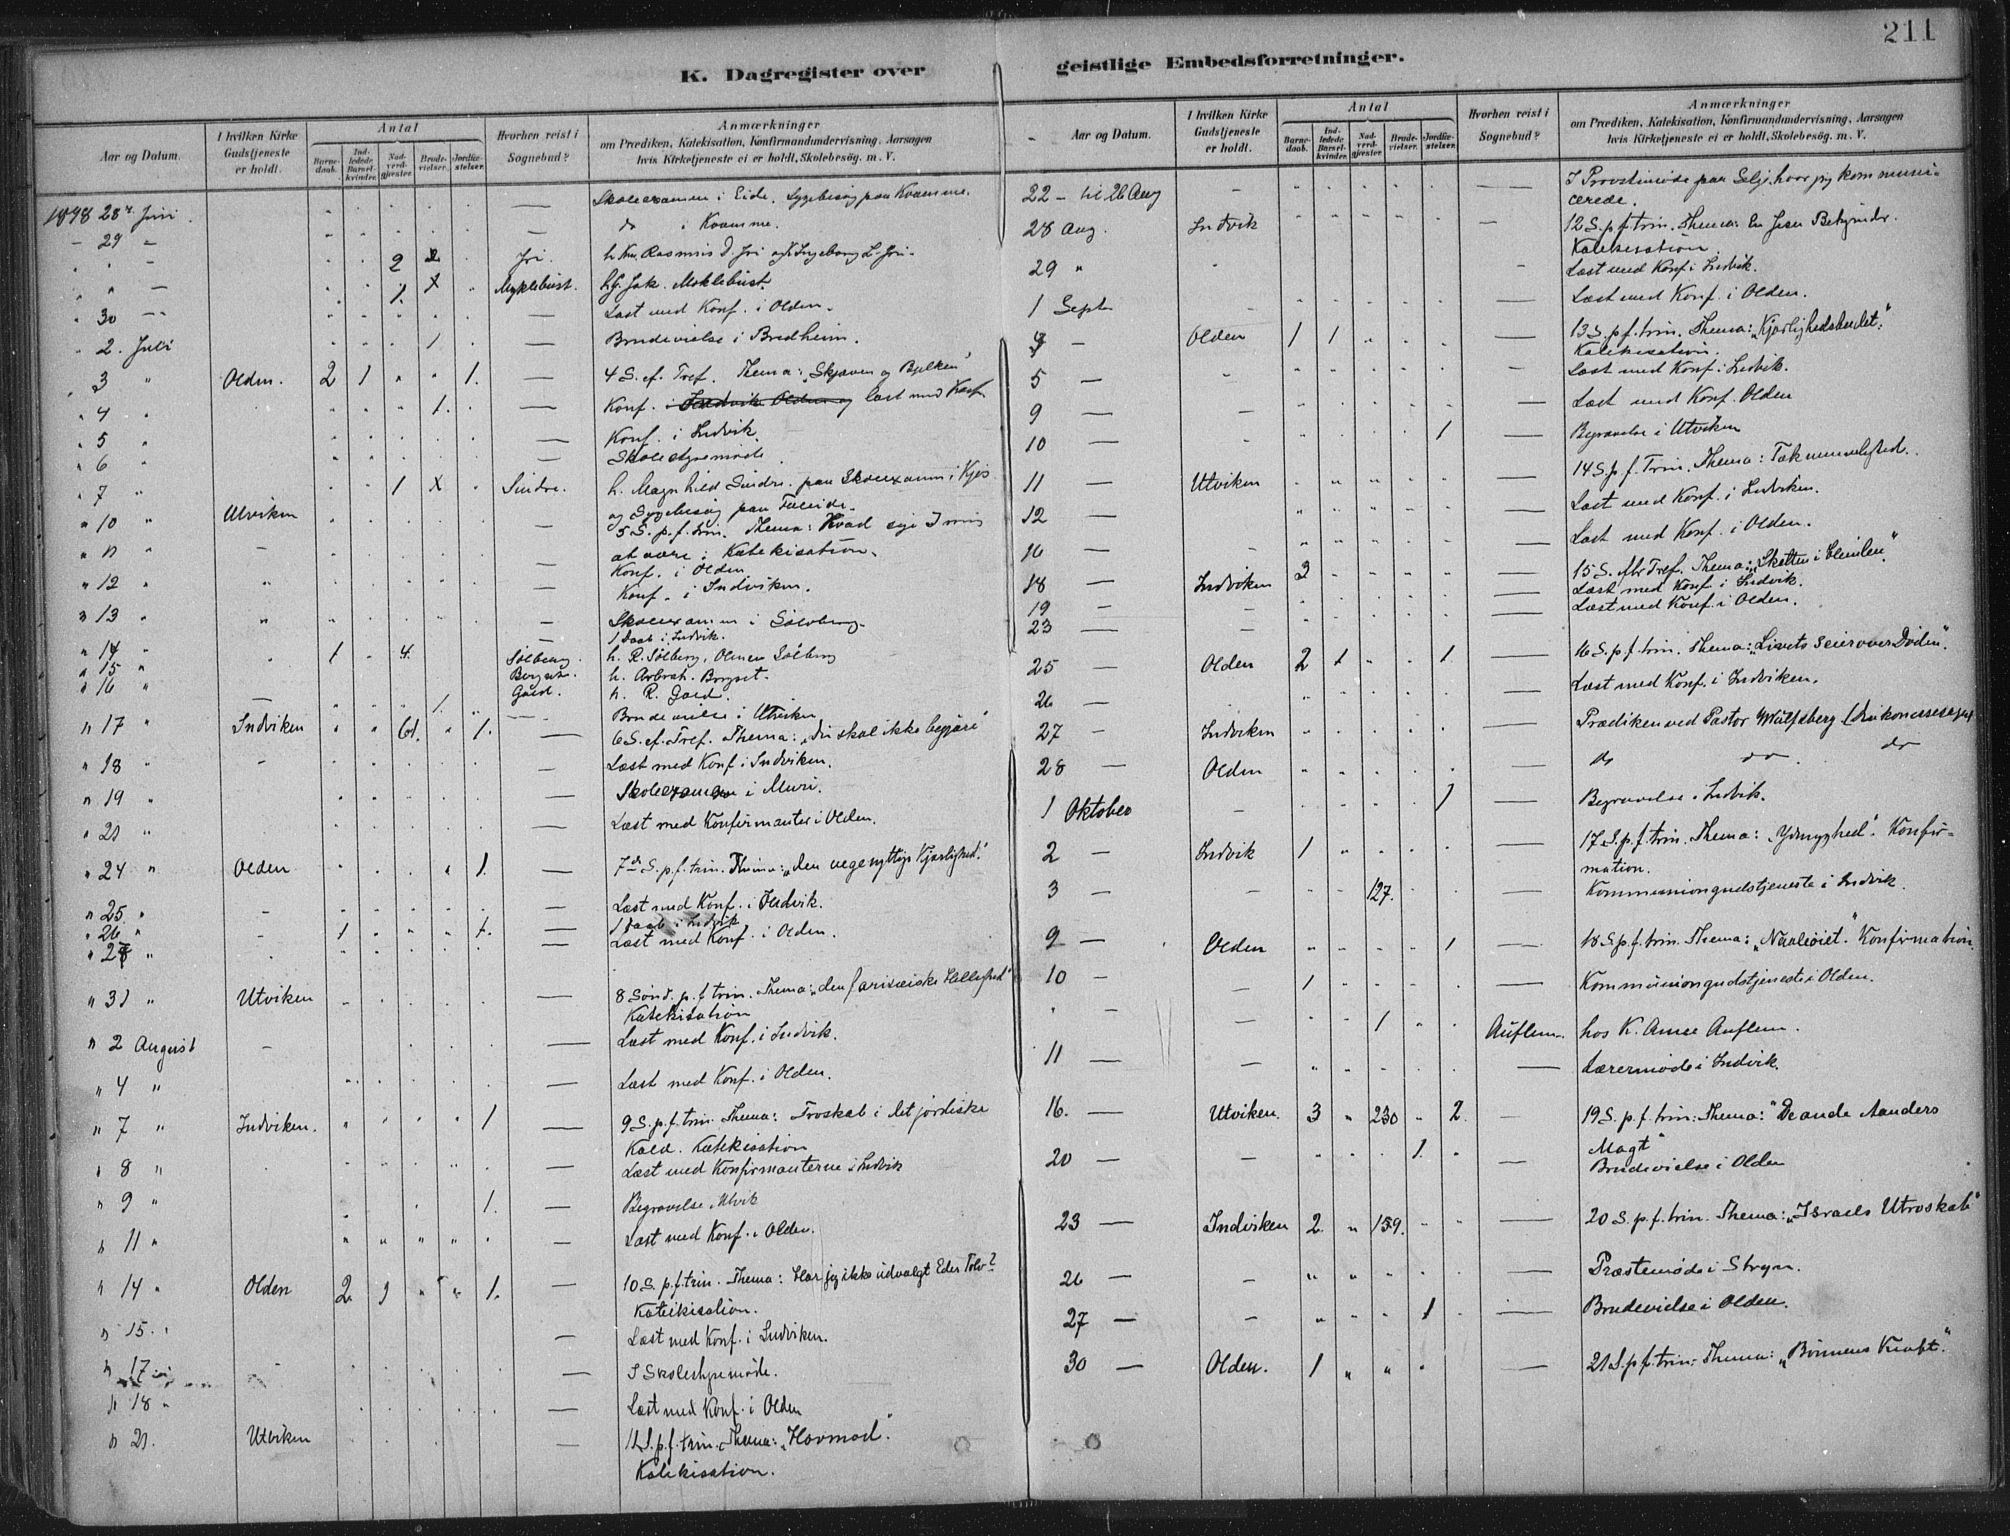 211
K. Dagregister over
geistlige Embedsforretninger.
Aar og Datum.
I hvilken Kirke Gudstjeneste er holdt.
Antal
Barne-daab.
Ind-ledede Barsel-kvinder.
Nad-verd-gjester.
Brude-vielser.
Jordfæ-stelser.
Hvorhen reist i Sognebud?
Anmærkninger
om Prædiken, Katekisation, Konfirmandundervisning, Aarsagen
hvis Kirketjeneste ei er holdt, Skolebesøg. m. V.
1898 28 Juni Skoleexamen i Eide, Sygebesøg paa Kvamme.
" 29 " do i Kvamme.
" " 2 Jri. h. Rasmus D. Jri og Ingeborg L. Jri.
" " 1. Myklebust. Jak. Moklebust.
" 30 Læst med Konf. i Olden.
" 2. Juli 1 Brudevielse i Bredheim.
" 3 " Olden. 2 1 " " 1. 4 S. ef. Tref. Thema: "Skjæven og Bjelken"
" 4 " 1. Konf. læst med Konf
" 5 " Konf. i Indvik.
" 6 " Skolestyremøde.
" 7 " 1 Sindre. h. Magnhild Sindre. paa Skoleexamen i Kjøs
og Sygebesøg paa Faleide.
" 10 " Utviken 5 S. p. f. trin. Thema: Hvad sige I mig
at være; Katekisation.
" 11 " Konf. i Olden
" 12 " Konf. i Indviken.
" 13 " Skoleexamen i Sølvberg.
1 Daab i Indvik.
" 14 " 1 4. Sølberg. h. R. Sølberg, Sølberg
" 15 " Berget. h. Berget.
" 16 " Gaard. h. R. Gaard.
1 Brudevielse i Utviken
" 17 " Indviken " " 61. " 1. 6 S. ef. Tref. Thema: "Du skal ikke begjære"
" 18 " Læst med Konf i Indviken.
" 19 " Skoleexamen i Muri.
" 21 " Læst med Konfirmanter i Olden.
" 24 " Olden 1. 7de S. p. f. trin. Thema: "den uegenyttige Kjærlighed."
" 25 " Læst med Konf. i Indvik.
" 26 " 1 1. 1 Daab i Indvik
" 28 " Læst med Konf. i Olden.
" 31 " Utviken 8 Sønd. p. f. trin. Thema: "den farisæiske Hellighed"
Katekisation
" 2 August Læst med Konf. i Indvik.
" 4 " Læst med Konf. i Olden.
" 7 " Indviken. 1 9 S. p. f. trin. Thema: Troskab i det jordiske
Kald. Katekisation
" 8 " Læst med Konfirmanterne i Indvik
" 9 " 1. Begravelse i Utvik
" 11 " Læst med Konf. i Olden.
" 14 " Olden 2 " " 1. 10 S. p. f. trin. Thema: Har jeg ikke udvalgt Eder Tolv?
Katekisation.
" 15. " Læst med Konf. i Indviken.
" 17 " I Skolestyremøde.
" 18 " Læst med Konf. i Olden
" 21. Utviken 11 S. p. f. trin. Thema: "Hovmod."
Katekisation.
Aar og Datum.
I hvilken Kirke Gudstjeneste er holdt.
Antal
Barne-daab.
Ind-ledede Barsel-kvinder.
Nad-verd-gjester.
Brude-vielser.
Jordfæ-stelser.
Hvorhen reist i Sognebud?
Anmærkninger
om Prædiken, Katekisation, Konfirmandundervisning, Aarsagen
hvis Kirketjeneste ei er holdt, Skolebesøg. m. V.
22 - til 26 Aug I Provstimøde paa Selje, hvor jeg kommuni-
cerede.
28 Aug. Indvik 12 S. p. f. trin. Thema: En Jesu Bekjender.
Katekisation.
29 " Læst med Konf i Indvik.
1 Sept Læst med Konf. i Olden.
4 — Olden 1 1 13 S. p. f. trin. Thema: "Kjærlighedsbudet."
Katekisation.
5 — Læst med Konf. i Indvik.
9 — Læst med Konf. Olden
10 — 1 Begravelse i Utviken
11 — Utviken 14 S. p. f. Trin. Thema: Taknemmelighed.
12 — Læst med Konf. i Indviken.
16 — Læst med Konf. i Olden.
18 — Indviken 2 15 S. Tref. Thema: "Skatten i Himlen."
19 — Læst med Konf. i Indvik.
23 — Læst med Konf. i Olden.
25 — Olden 2 1 1 16 S. p. f. trin. Thema: "Livets Seier over Døden."
26 — Læst med Konf. i Indviken.
27 — Indviken Prædiken ved Pastor Wulfsberg
28 — Olden do do do
1 Oktober 1 Begravelse i Indvik.
2 — Indvik 1 17 S. p. f. trin. Thema: "Ydmyghed". Konfir-
mation.
3 — 127. Kommuniongudstjeneste i Indvik.
9 — Olden 1 18 S. p. f. trin. Thema: "Naaleøiet." Konfirmation.
10 — 1 Kommuniongudstjeneste i Olden.
" 1 Auflem hos K. Auflem.
11 — Lærermøde i Indvik.
16. — Utviken. 3 " 230 " 2. 19 S. p. f. trin. Thema: "De onde Aanders
Magt"
20 — 1 Brudevielse i Olden
23 — Indviken 2 " 159. 20 S. p. f. trin. Thema: "Israels Utroskab"
26 — Præstemøde i Stryn.
27 — 1 Brudevielse i Olden.
30 — Olden. 1 21 S. p. f. trin. Thema: "Bønnens Kraft."